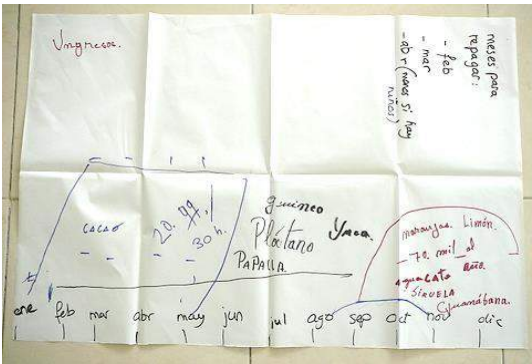 Ingresos.
meses para
repagar:
- feb
- mar
- abr (menos si hay
niños)
CACAO
30h.
guineo
Plátano
Yuca.
PAPALLA.
Naranjas. Limón.
70. mil al
año.
aguacate
SIRUELA
Guanábana.
ene feb mar abr may jun jul ago sep oct nov dic